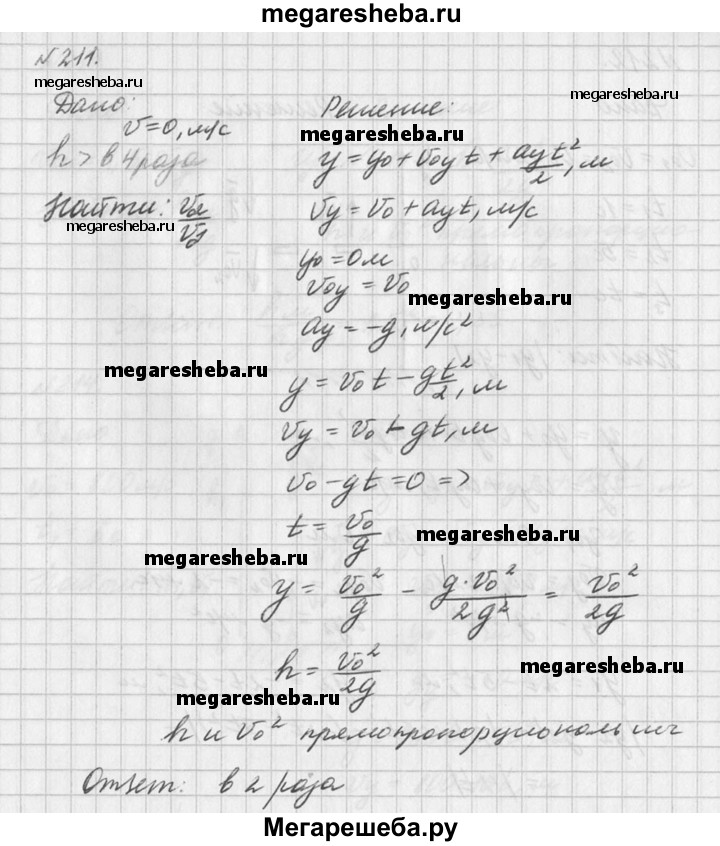 megaresheba.ru
№ 211.
megaresheba.ru
Дано:
v=0, м/с
h > в 4 раза
Найти: v₀₂/v₁
megaresheba.ru
Решение:
megaresheba.ru
megaresheba.ru
y = y₀ + v₀y t + ayt²/2, м
vy = v₀ + ayt, м/с
y₀ = 0 м
v₀y = v₀
megaresheba.ru
ay = -g, м/с²
megaresheba.ru
y = v₀t - gt²/2, м
vy = v₀ - gt, м
v₀ - gt = 0 =>
t = v₀/g
megaresheba.ru
megaresheba.ru
y = v₀²/g - g·v₀²/2g² = v₀²/2g
h = v₀²/2g
megaresheba.ru
megaresheba.ru
h и v₀² прямопропорциональны
Ответ: в 2 раза
Мегарешеба.ру